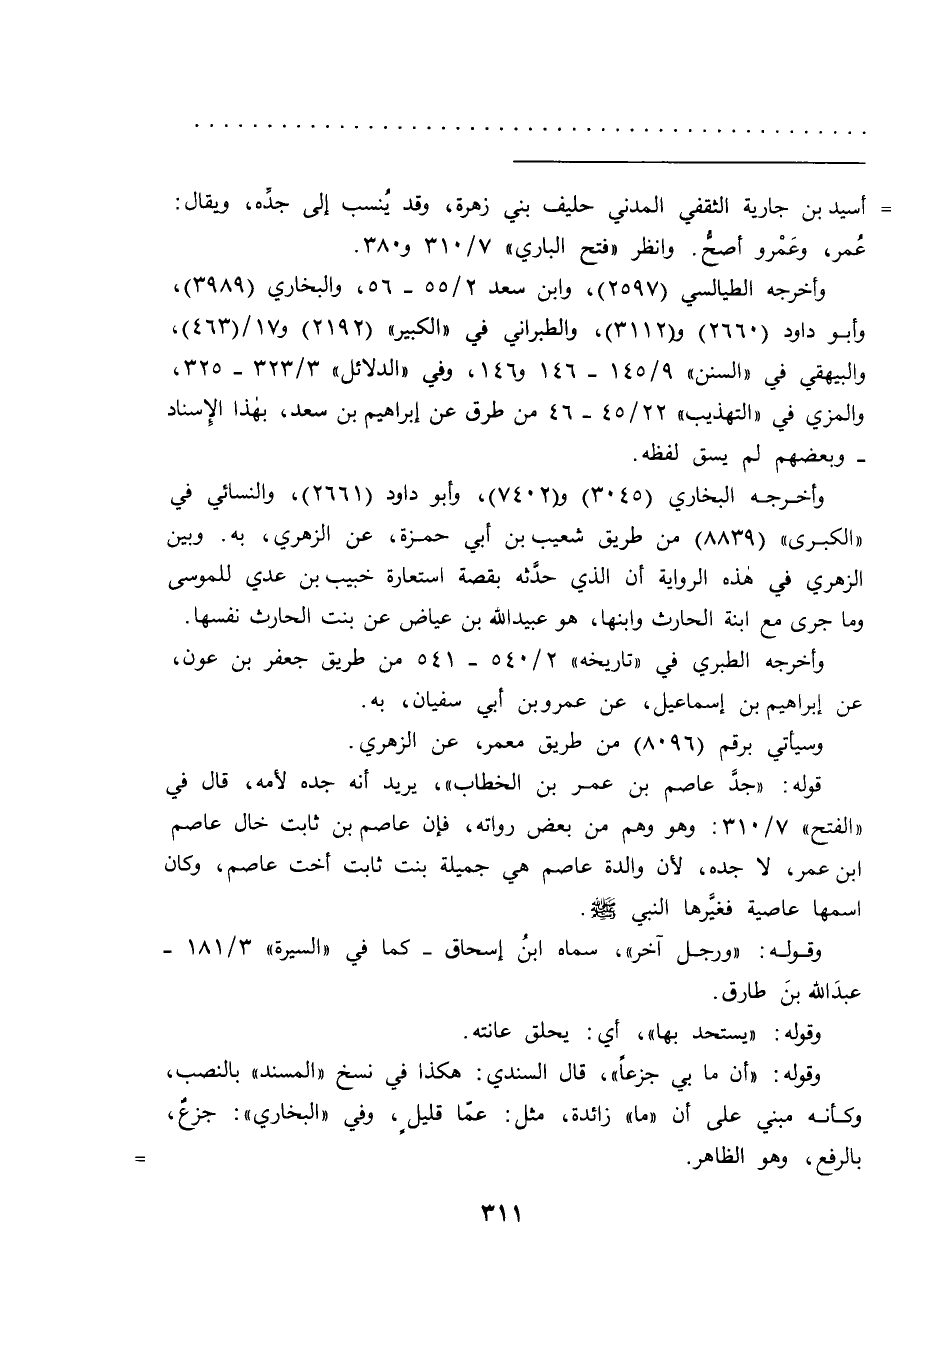 = أسيد بن جارية الثقفي المدني حليف بني زهرة، وقد يُنسب إلى جدِّه، ويقال:
عُمر، وعَمْرو أصحُّ. وانظر «فتح الباري» ٣١٠/٧ و٣٨٠.
وأخرجه الطيالسي (٢٥٩٧)، وابن سعد ٥٥/٢ ـ ٥٦، والبخاري (٣٩٨٩)،
وأبو داود (٢٦٦٠) و(٣١١٢)، والطبراني في «الكبير» (٢١٩٢) و١٧/(٤٦٣)،
والبيهقي في «السنن» ١٤٥/٩ ـ ١٤٦ و١٤٦، وفي «الدلائل» ٣٢٣/٣ ـ ٣٢٥،
والمزي في «التهذيب» ٤٥/٢٢ ـ ٤٦ من طرق عن إبراهيم بن سعد، بهٰذا الإِسناد
ـ وبعضهم لم يسق لفظه.
وأخرجه البخاري (٣٠٤٥) و(٧٤٠٢)، وأبو داود (٢٦٦١)، والنسائي في
«الكبرى» (٨٨٣٩) من طريق شعيب بن أبي حمزة، عن الزهري، به. وبين
الزهري في هٰذه الرواية أن الذي حدَّثه بقصة استعارة خبيب بن عدي للموسى
وما جرى مع ابنة الحارث وابنها، هو عبيدالله بن عياض عن بنت الحارث نفسها.
وأخرجه الطبري في «تاريخه» ٥٤٠/٢ ـ ٥٤١ من طريق جعفر بن عون،
عن إبراهيم بن إسماعيل، عن عمرو بن أبي سفيان، به.
وسيأتي برقم (٨٠٩٦) من طريق معمر، عن الزهري.
قوله: «جدَّ عاصم بن عمر بن الخطاب»، يريد أنه جده لأمه، قال في
«الفتح» ٣١٠/٧: وهو وهم من بعض رواته، فإن عاصم بن ثابت خال عاصم
ابن عمر، لا جده، لأن والدة عاصم هي جميلة بنت ثابت أخت عاصم، وكان
اسمها عاصية فغيَّرها النبي ﷺ.
وقوله: «ورجل آخر»، سماه ابنُ إسحاق ـ كما في «السيرة» ١٨١/٣ ـ
عبدَالله بنَ طارق.
وقوله: «يستحد بها»، أي: يحلق عانته.
وقوله: «أن ما بي جزعاً»، قال السندي: هكذا في نسخ «المسند» بالنصب،
وكأنه مبني على أن «ما» زائدة، مثل: عمّا قليلٍ، وفي «البخاري»: جزعٌ،
بالرفع، وهو الظاهر. =
٣١١